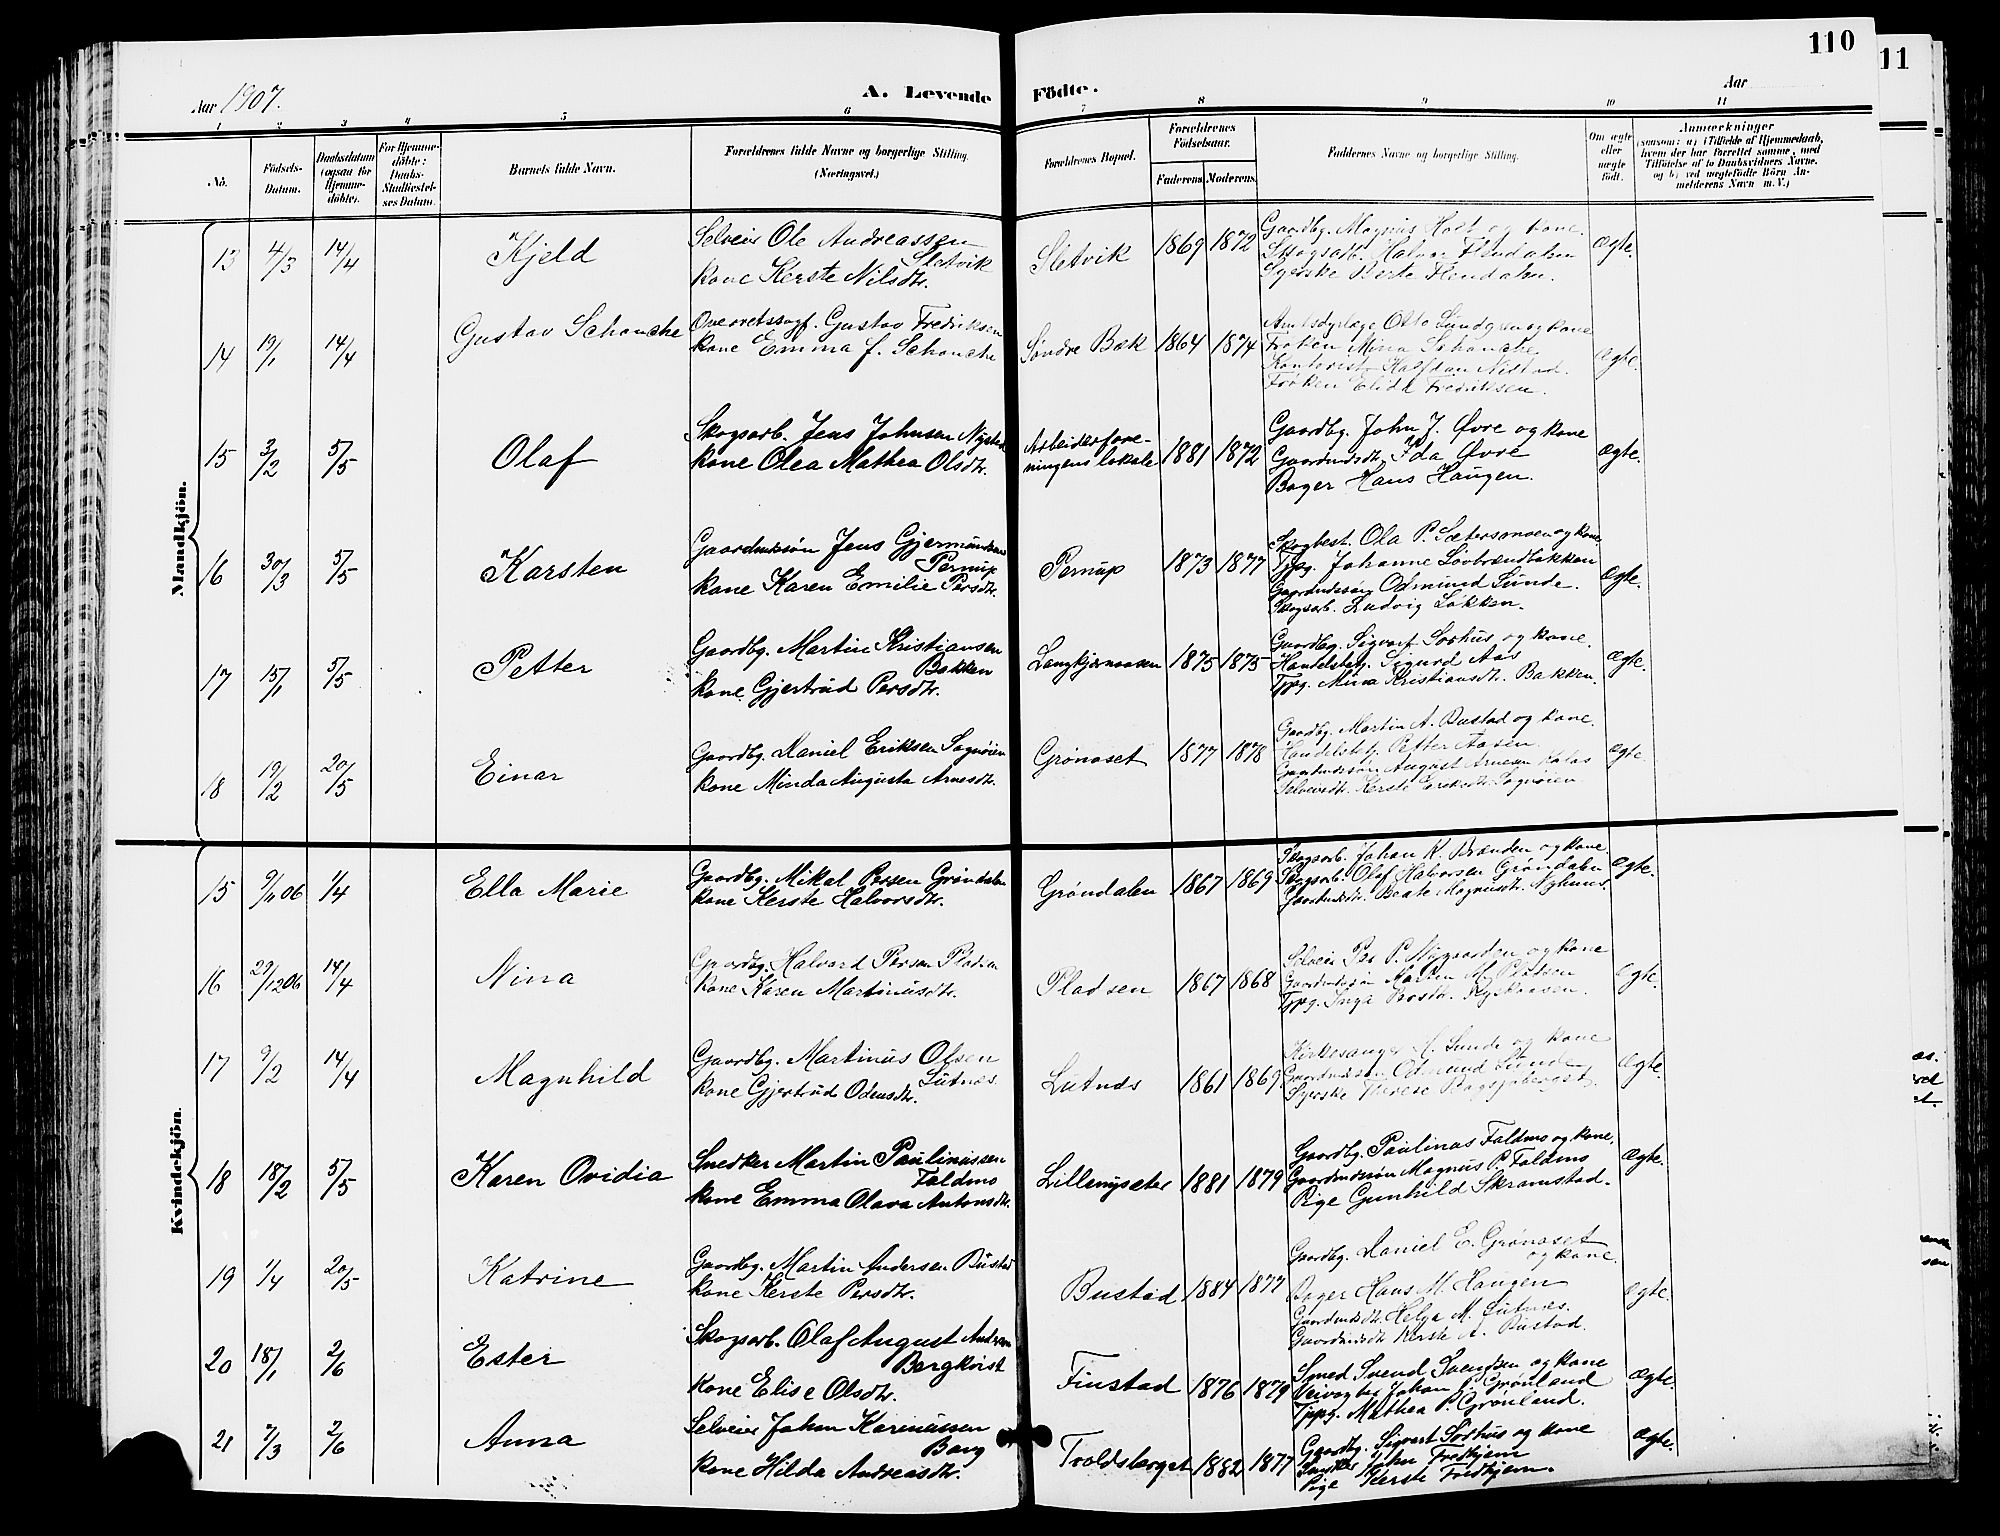 110
11
Aar 1907.
A. Levende Födte.
Aar
1 2 3 4 5 6 7 8 9 10 11
No.
Födsels-Datum.
Daabsdatum (ogsaa for Hjemmedöbte).
For Hjemmedöbte: Daabs-Stadfæstelses Datum.
Barnets fulde Navn.
Forældrenes fulde Navne og borgerlige Stilling. (Næringsvei.)
Forældrenes Bopæl.
Forældrenes Födselsaar.
Faderens. Moderens.
Faddernes Navne og borgerlige Stilling.
Om ægte eller uægte födt.
Anmærkninger
(saasom: a) i Tilfælde af Hjemmedaab, hvem der har forrettet samme, med Tilföielse af to Daabsvidners Navne, og b) ved uægtefödte Börn Anmelderens Navn m. V.)
Mandkjön.
13 4/3 14/4 Kjeld
Selveier Ole Andreassen Sletvik
Kone Kerste Nilsdtr.
Sletvik 1869 1872
Gaardbg. Magnus Hodt og kone.
Skogsarb. Halvor Flendalen
Syerske Berte Flendalen.
ægte.
14 19/1 14/4 Gustav Schanche
Overretssagf. Gustav Fredriksen
Kone Emma f. Schanche
Søndre Bæk 1864 1874
Amtsdyrlæge Otto Lundgren og kone
Frøken Mina Schanche
Kontorist Halfdan Nistad.
Frøken Elida Fredriksen.
ægte.
15 3/2 5/5 Olaf
Skogsarb. Jens Johnsen Nystad
Kone Olea Mathea Olsdtr.
Arbeiderforeningens lokale 1881 1872
Gaardbg. John J. Øvre og kone
Gaardmdsdtr. Ida Øvre
Bager Hans Haugen.
ægte.
16 30/3 5/5 Karsten
Gaardmdssøn Jens Gjermundsen Pernup
Kone Karen Emilie Persdtr.
Pernup 1873 1877
Skogbest. Ola P. Sætersmoen og kone.
Tjpg. Johanne Løvbrændbakken
Gaardmdssøn Odmund Sunde.
Skogsarb. Ludvig Løkken.
ægte.
17 15/1 5/5 Petter
Gaardbg. Martin Kristiansen Bakken
Kone Gjertrud Persdtr.
Langkjernaasen 1875 1875
Gaardbg. Sigvart Sørhus og kone.
Handelsbetj. Sigurd Aas
Tjpg. Mina Kristiansdtr. Bakken.
ægte.
18 19/2 20/5 Einar
Gaardbg. Daniel Eriksen Sagnøien
Kone Minda Augusta Arnesdtr.
Grønoset 1877 1878
Gaardbg. Martin A. Bustad og kone.
Handelsbetj. Petter Aasen.
Gaardmdssøn August Arnesen Kolos
Selveierdtr. Kerste Eriksdtr. Sagnøien
ægte.
Kvindekjön.
15 9/11 06 1/4 Ella Marie
Gaardbg. Mikal Persen Grøndalen
Kone Kerste Halvorsdtr.
Grøndalen 1867 1869
Skogsarb. Johan K. Brænden og kone
Skogsarb. Olaf Halvorsen Grøndalen
Gaardmdsdtr. Beate Magnusdtr. Nyhuus.
ægte.
16 29/12 06 14/4 Nina
Gaardbg. Halvard Persen Pladsen
Kone Karen Martinusdtr.
Pladsen 1867 1868
Selveier Per P. Nygaarden og kone
Gaardmdssøn Martin M. Pladsen
Tjpg. Inga
ægte.
17 9/2 14/4 Magnhild
Gaardbg. Martinus Olsen Lutnes.
Kone Gjertrud Odensdtr.
Lutnes 1861 1869
Kirkesanger A. Sunde og kone
Gaardmdssøn Odmund Sunde
Syerske Therese
ægte.
18 18/2 5/5 Karen Ovidia
Snedker Martin Paulinussen Faldmo
Kone Emma Olava Antonsdtr.
Lillenysæter 1881 1879
Gaardbg. Paulinus Faldmo og kone.
Gaardmdssøn Magnus P. Faldmo
Pige Gunhild Skramstad.
ægte.
19 1/4 20/5 Katrine
Gaardbg. Martin Andersen Bustad
Kone Kerste Persdtr.
Bustad 1884 1877
Gaardbg. Daniel E. Grønoset og kone.
Bager Hans M. Haugen
Gaardmdsdtr. Helga M. Lutnes.
Gaardmdsdtr. Kerste A. Bustad.
ægte.
20 18/1 2/6 Ester
Skogsarb. Olaf August Andersen Bergkvist
Kone Elise Olsdtr.
Finstad 1876 1879
Smed Svend Svendsen og kone
Veivogter Johan P. Grønland
Tjpg. Mathea P. Grønland.
ægte.
21 7/3 2/6 Anna
Selveier Johan Karinussen Bang
Kone Hilda Andreasdtr.
Troldsberget 1882 1877
Gaardbg. Sigvart Sørhus og kone
Snedker John Fredhjem
Pige Kerste Fredhjem.
ægte.